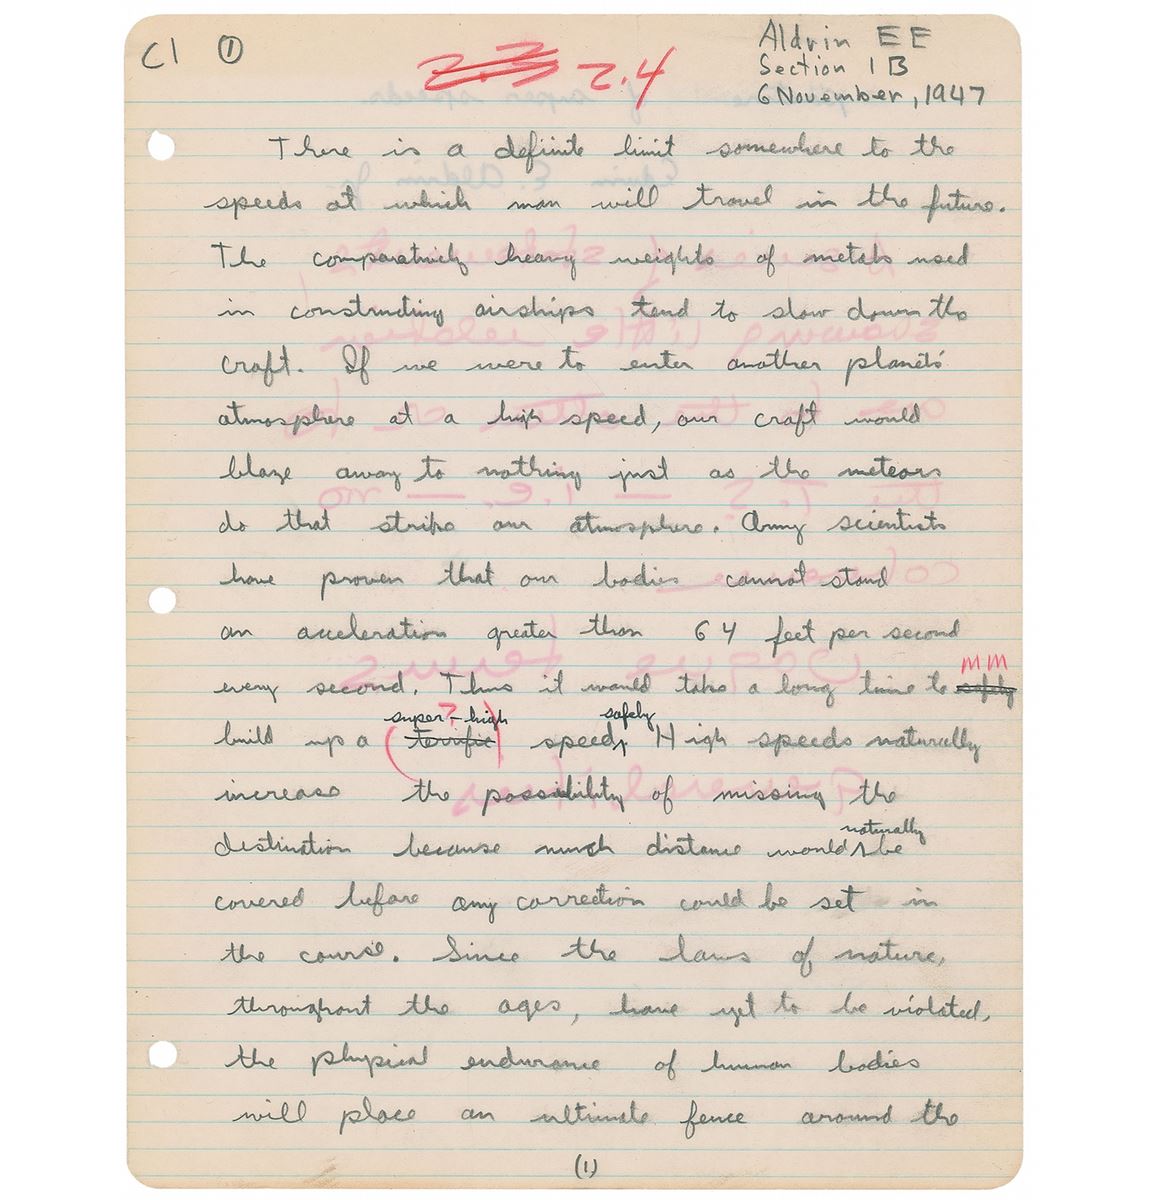 C1 ①
2.3 2.4
Aldrin EE
Section 1B
6 November, 1947
There is a definite limit somewhere to the
speeds at which man will travel in the future.
The comparatively heavy weights of metals used
in constructing airships tend to slow down the
craft. If we were to enter another planets'
atmosphere at a high speed, our craft would
blaze away to nothing just as the meteors
do that strike our atmosphere. Army scientists
have proven that our bodies cannot stand
an acceleration greater than 64 feet per second
MM
every second. Thus it would take a long time to safely
super-high safely
build up a (terrific) speed. High speeds naturally
increase the possibility of missing the
naturally
destination because much distance would be
covered before any correction could be set in
the course. Since the laws of nature,
throughout the ages, have yet to be violated,
the physical endurance of human bodies
will place an ultimate fence around the
(1)